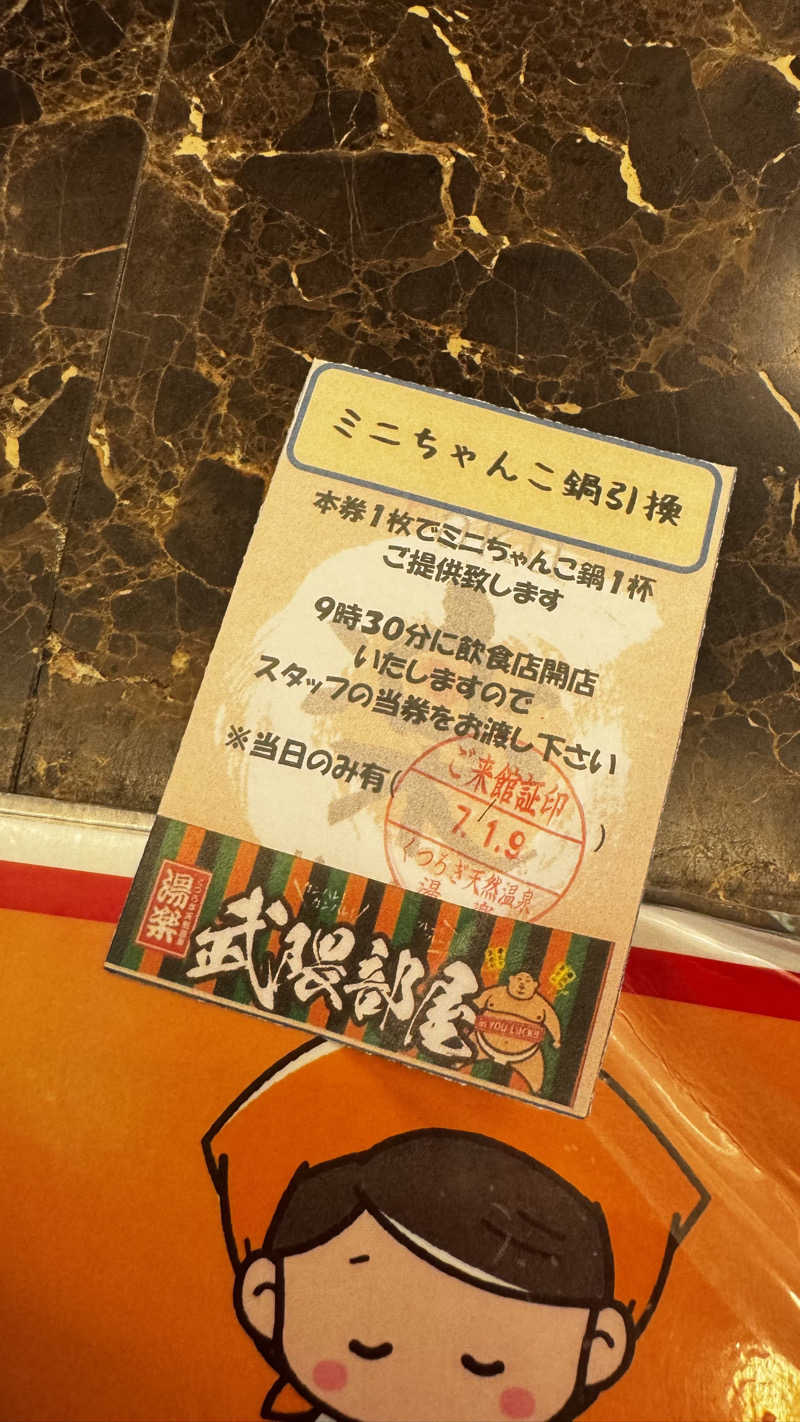 ミニちゃんこ鍋引換
本券1枚でミニちゃんこ鍋1杯
ご提供致します
9時30分に飲食店開店
いたしますので
スタッフの当券をお渡し下さい
※当日のみ有(
)
ご来館証印
7.1.9
くつろぎ天然温泉
湯楽
くつろぎ天然温泉
湯楽
武隈部屋
YOU LUCKY